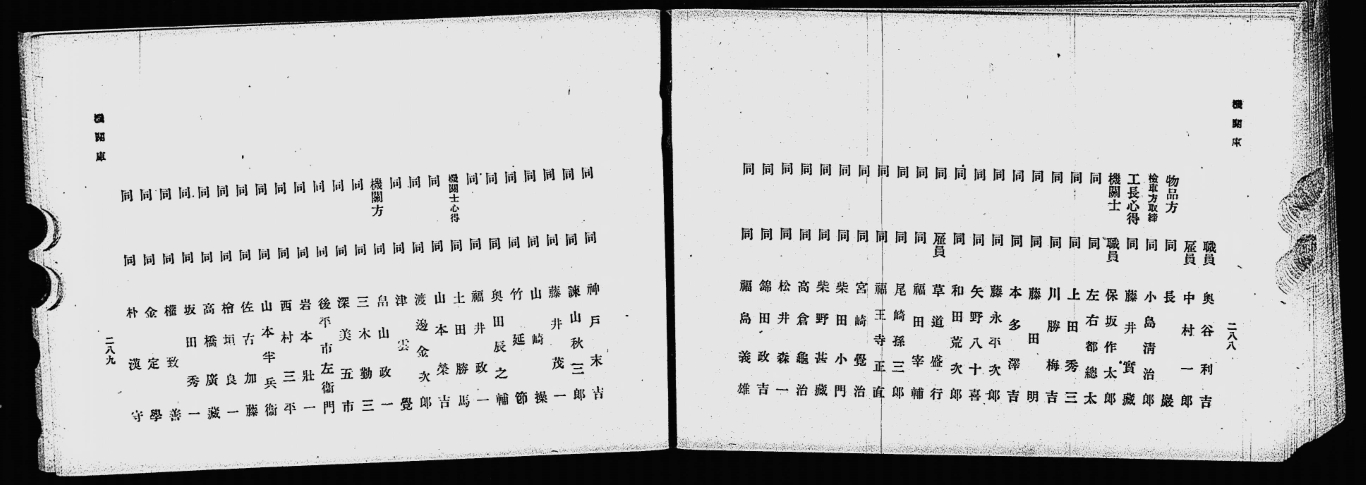 機關庫
二八八
職員 奥谷利吉
物品方 雇員 中村一郎
同 長巖
檢車方取締 同 小島清治郎
工長心得 同 藤井實藏
機關士 職員 保坂作太郎
同 同 左右都總太
同 同 上田秀三
同 同 川勝梅吉
同 同 藤田明
同 同 本多澤吉
同 同 藤永平次郎
同 同 矢野八十喜
同 同 和田荒次郎
同 雇員 草道盛行
同 同 福田宰輔
同 同 尾崎孫三郎
同 同 福王寺正直
同 同 宮崎覺治
同 同 柴田小門
同 同 柴野甚藏
同 同 高倉龜治
同 同 松井森一
同 同 錦田政吉
同 同 福島義雄
機關庫
二八九
同 同 神戸末吉
同 同 諫山秋三郎
同 同 藤井茂
同 同 山崎操
同 同 竹延節
同 同 奥田辰之輔
同 同 福井政一
機關士心得 同 土田勝馬
同 同 山本榮吉
同 同 渡邊金次郎
同 同 津雲覺
機關方 同 畠山政一
同 同 三木勤三
同 同 深美五市
同 同 後平市左衞門
同 同 岩本壯一
同 同 西村三平
同 同 山本牢兵衞
同 同 佐古加藤
同 同 檜垣良一
同 同 高橋廣藏
同 同 坂田秀一
同 同 權致善
同 同 金定學
同 同 朴漢守